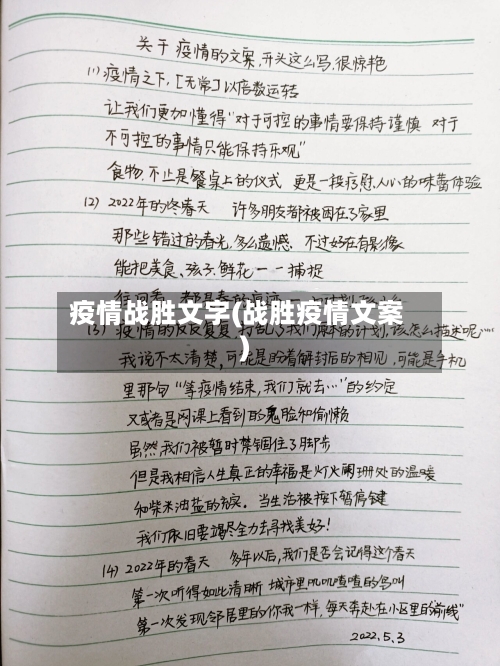 关于疫情的文案,开头这么写,很惊艳
(1)疫情之下,[无常]以倍数运转
让我们更加懂得"对于可控的事情要保持谨慎 对于
不可控的事情只能保持乐观"
食物,不止是餐桌上的仪式 更是一段疗慰人心的味蕾体验
(2) 2022年的春天 许多朋友都被困在了家里
那些错过的春光,多么遗憾、不过好在有影像
能把美食、孩子、鲜花一一捕捉
疫情战胜文字(战胜疫情文案
)
(3) 疫情的反反复复,打乱了我们原本的计划,该怎么描述呢····
我说不太清楚,可能是的着解封后的相见,可能是手机
里那句"等疫情结束,我们就去…"的约定
又或者是网课上看到的鬼脸和偷懒
虽然我们被暂时禁锢住了脚步
但是我相信人生真正的幸福是灯火阑珊处的温暖
和柴米油盐的充实。当生活被按下暂停键
我们依旧要竭尽全力去寻找美好!
(4) 2022年的春天 多年以后,我们是否会记得这个春天
第一次听得如此清晰 城市里叽叽喳喳的鸟叫
第一次发现邻居里的你我一样,每天奔赴在小区里的"前线"
2022.5.3